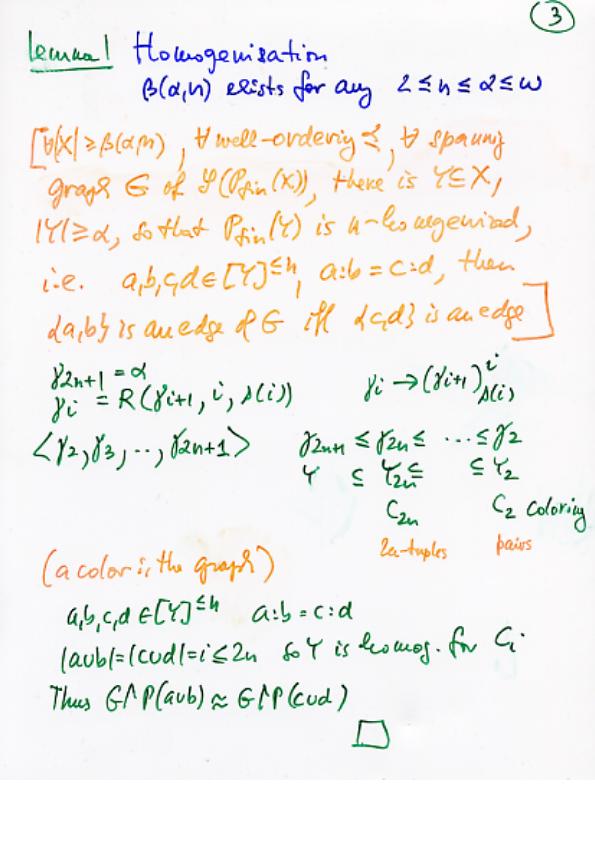 3
Lemma 1 Homogenisation
β(α,n) exists for any 2 ≤ n ≤ α ≤ ω
[∀|X| ≥ β(α,n), ∀ well-ordering ≼, ∀ spanning
graph G of (P_fin(X)), there is Y⊆X,
|Y| ≥ α, so that P_fin(Y) is n-homogenized,
i.e. a,b,c,d ∈ [Y]^≤n, a:b = c:d, then
{a,b} is an edge of G iff {c,d} is an edge]
γ_2n+1 = α
γ_i = R(γ_i+1, i, s(i)) γ_i → (γ_i+1)^i_s(i)
<γ_2, γ_3, .., γ_2n+1> γ_2n+1 ≤ γ_2n ≤ ... ≤ γ_2
Y ⊆ Y_2n ⊆ ⊆ Y_2
C_2n C_2 coloring
2n-tuples pairs
(a color is the graph)
a,b,c,d ∈ [Y]^≤n a:b = c:d
|a∪b| = |c∪d| = i ≤ 2n so Y is homog. for C_i.
Thus G↾P(a∪b) ≈ G↾P(c∪d)
□